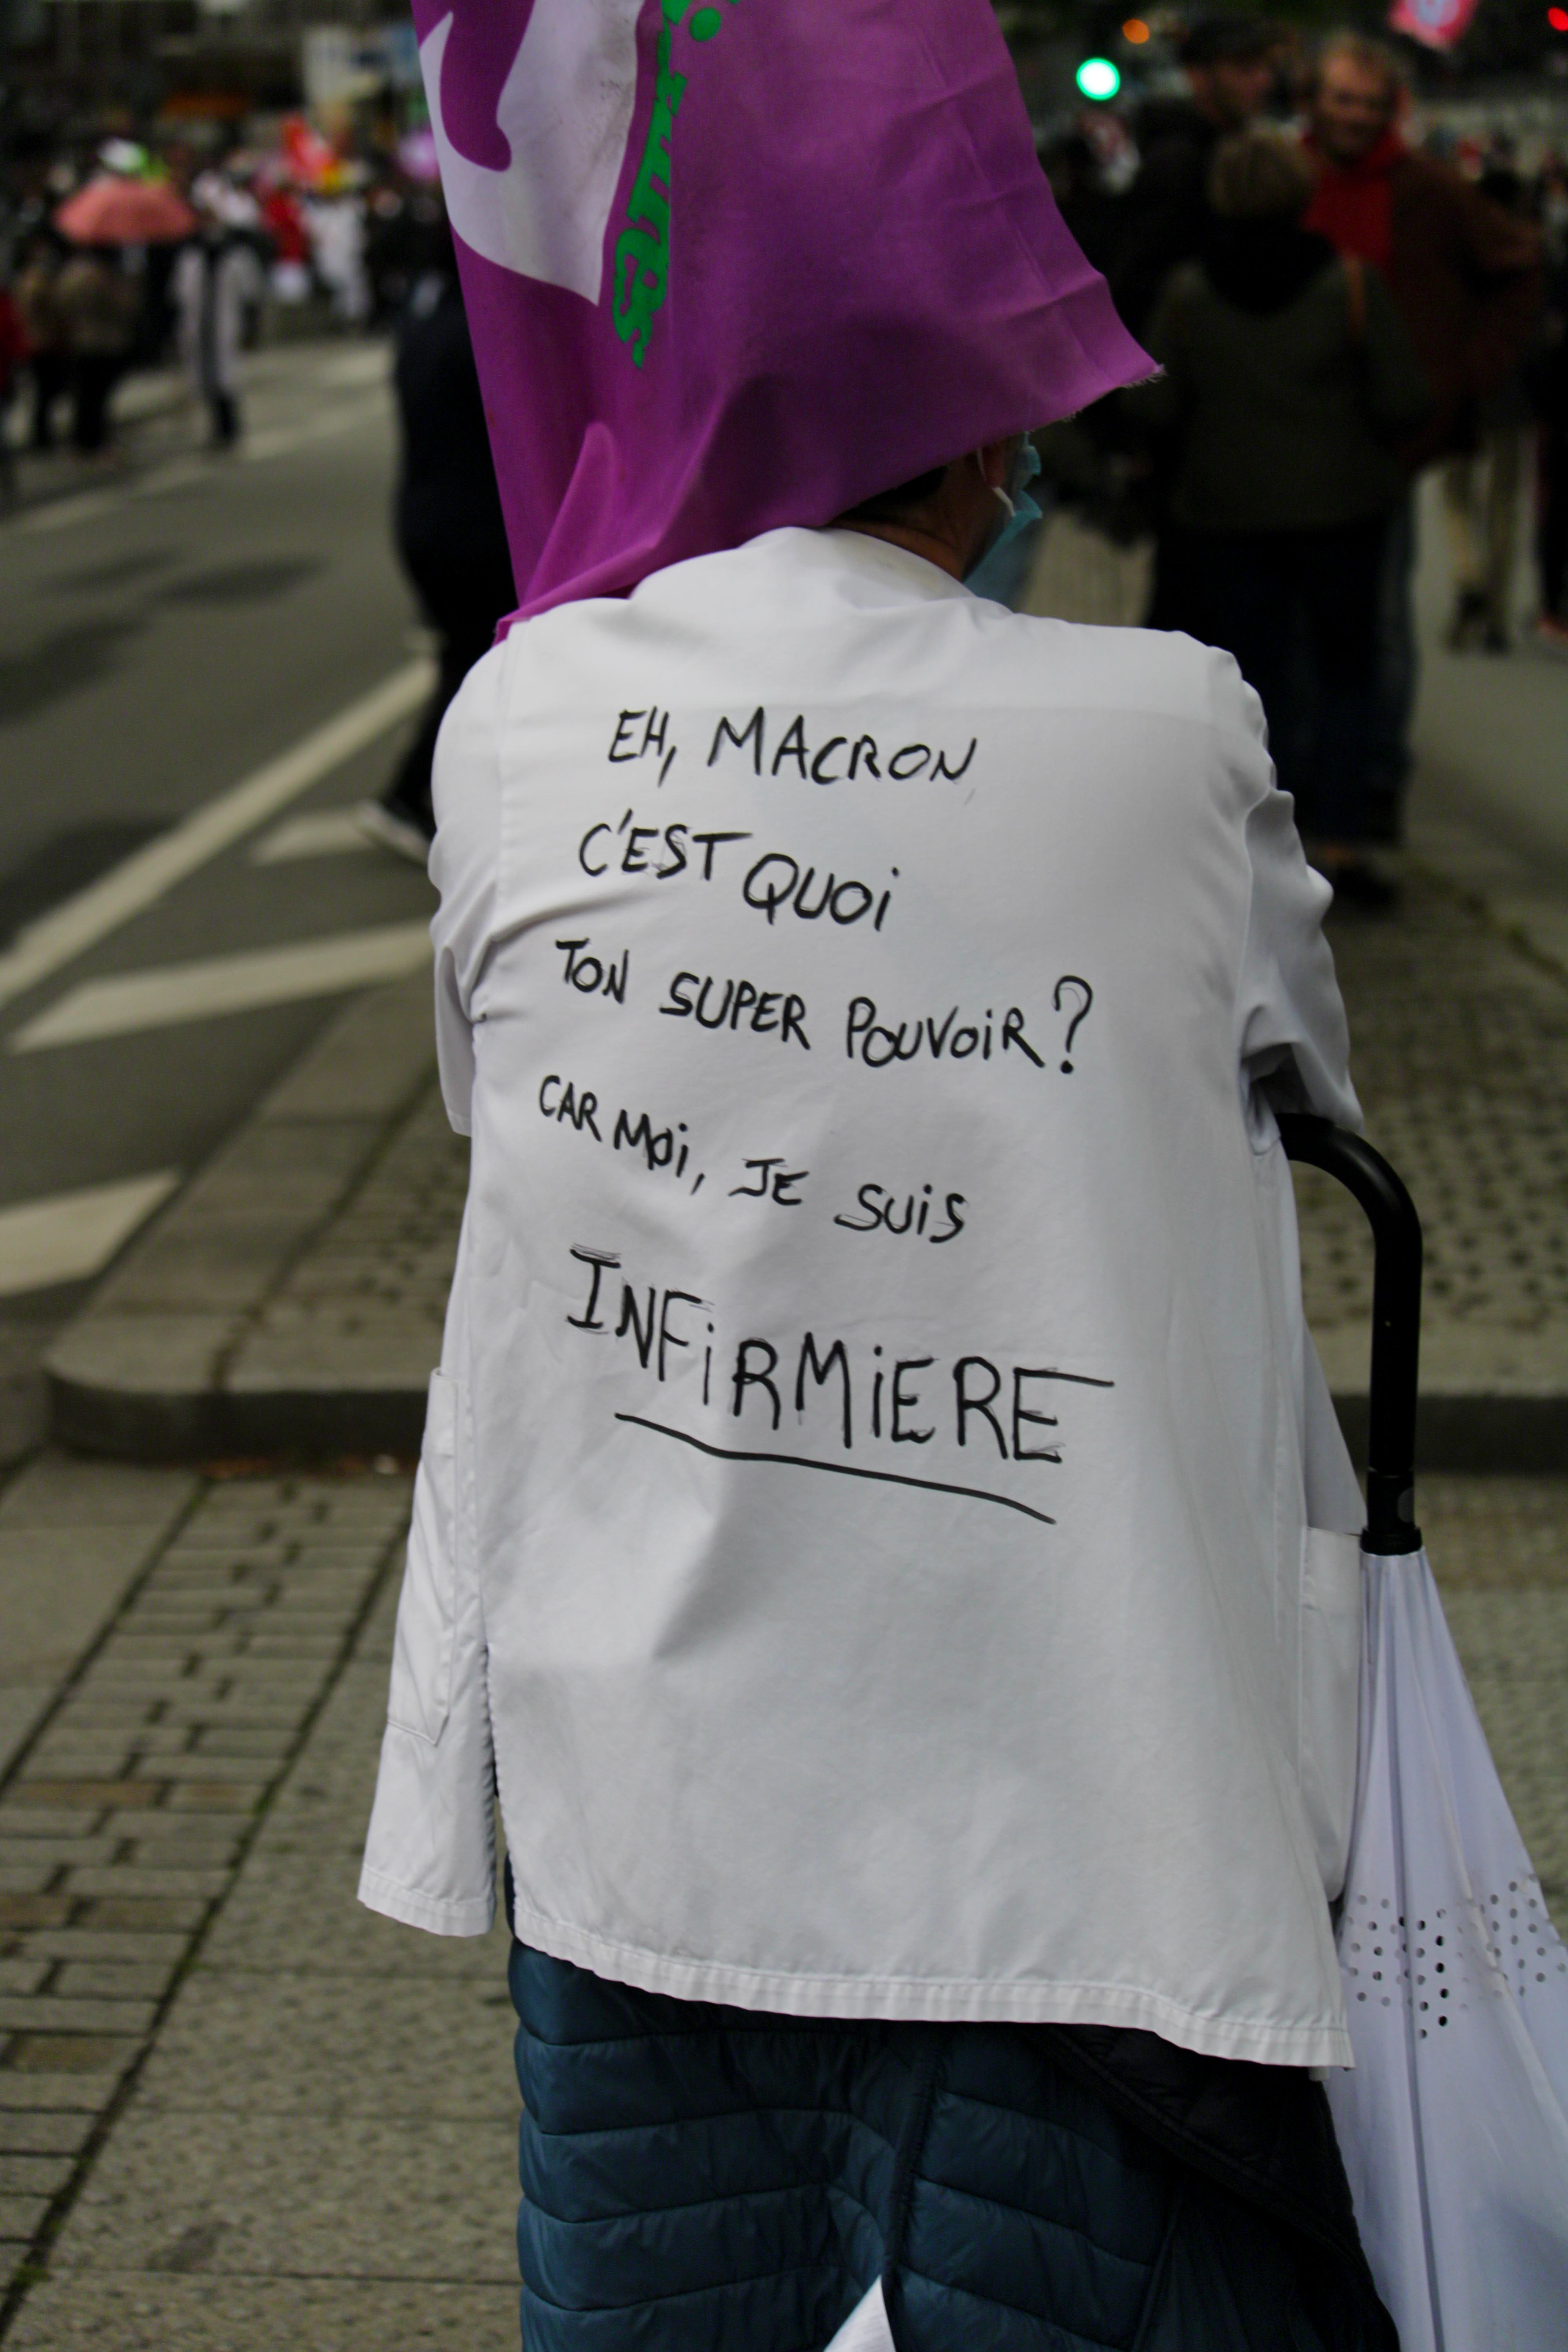 EH, MACRON,
C'EST QUOI
TON SUPER POUVOIR?
CAR MOI, JE SUIS
INFIRMIERE